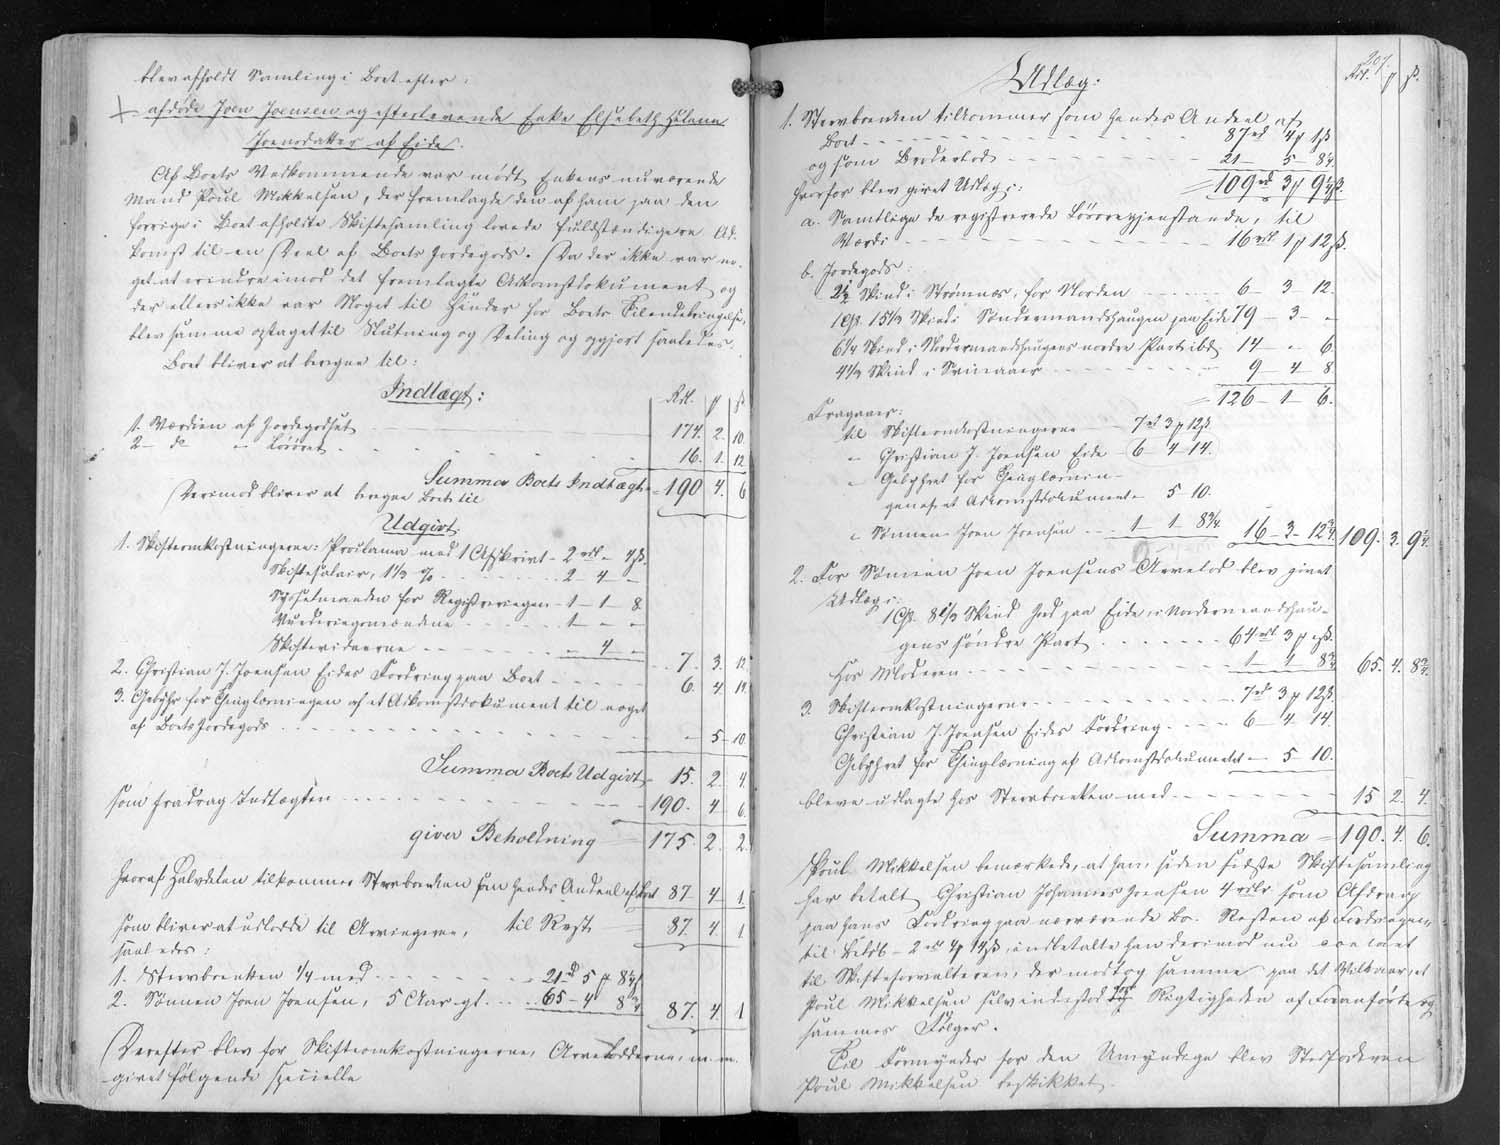 blev afholdt Samling i Boet efter:
afdøde Joen Joensen og efterlevende Enke Elsebeth Helena
Joensdatter af Eide.
Af Boets Vedkommende var mødt Enkens nuværende
Mand Poul Mikkelsen, der fremlagde den af ham paa den
forrige i Boet afholdte Skiftesamling lovede fuldstændigere Ad-
komst til en Deel af Boets Jordegods. Da der ikke var no-
get at erindre imod det fremlagte Adkomstdokument og
der ellers ikke var Noget til Hinder for Boets Tilendebringelse,
blev samme optaget til Slutning og Deling og opgjort saaledes.
Boet bliver at beregne til:
Indtægt:
Rdl. ꝑ ß
1. Værdien af Jordegodset 174. 2. 10.
2 - do - Løsøret 16. 1. 12
Summa Boets Indtægt = 190 4. 6
Derimod bliver at beregne Boets til
Udgivt.
1. Skifteomkostningerne: Proclama med 1 Afskrivt - 2 rdl - 4ß.
Skiftesalair, 1 1/3 % 2 - 4 -
Sysselmanden for Registreringen - 1 - 1 - 8
Vurderingsmændene 1 - - -
Skiftevidnerne - 4 - 7. 3. 12
2. Christian J. Joensen Eides Fordring paa Boet 6. 4. 14.
3. Gebyhr for Thinglæsningen af et Adkomstdokument til noget
af Boets Jordegods - 5 - 10.
Summa Boets Udgivt - 15. 2. 4.
som fradrag Indtægten 190. 4. 6.
giver Beholdning = 175. 2. 2.
hvoraf Halvdelen tilkommer Stervboenken som hendes Andeel af Boet 87 - 4 - 1.
som bliver at udlodde til Arvingerne, til Rest 87. 4. 1
saaledes:
1. Stervboenken 1/4 med 21 d 5 ꝑ 8 1/4 ß
2. Sønnen Joen Joensen, 5 Aar gl. 65 - 4 8 3/4 87. 4. 1
Derefter blev for Skifteomkostningerne, Arvelodderne m. m.
givet følgende specielle
207.
Udlæg:
Rdl. ꝑ ß.
1. Stervboenken tilkommer som hendes Andeel af
Boet 87 rd 4 ꝑ 1 ß
og som Broderlod 21 - 5 - 8 1/4
hvorfor blev givet Udlæg i: = 109 rd 3 ꝑ 9 1/4 ß.
a. Samtlige de registrerede Løsøregjenstande, til
Værdi 16 rdl. 1 ꝑ 12 ß.
b. Jordegods:
2 1/2 Skind i Strømnæs, for Norden 6 - 3 12.
1 Gl. 15 1/3 Skind i Søndermandshaugen paa Eide 79 - 3 - -
6 1/4 Skind i Nordermandshaugens nordre Part ibd. 14 - - 6.
4 1/3 Skind i Svinaaer 9 - 4 - 8.
= 126 - 1 - 6.
Fragaaer:
til Skifteomkostningerne 7 rd 3 ꝑ 12 ß
- Christian J. Joensen Eide 6 4 14.
- Gebyhret for Thinglæsnin-
gen af et Adkomstdokument - 5 10.
- Sønnen Joen Joensen 1 - 1 8 3/4 16 - 3 - 12 3/4 109. 3. 9 1/4
2. For Sønnen Joen Joensens Arvelod blev givet
Udlæg i:
1 Gl. 8 1/3 Skind Jord paa Eide i Nordermandshau-
gens søndre Part 64 rdl. 3 ꝑ - ß.
Hos Moderen 1 - 1 8 3/4 65. 4. 8 3/4
3. Skifteomkostningerne 7 rd 3 ꝑ 12 ß.
Christian J. Joensen Eides Fordring 6 - 4 - 14.
Gebyhret for Thinglæsning af Adkomstdokumentet - 5 10.
bleve udlagte hos Stervboenken med 15 2. 4.
Summa = 190. 4. 6.
Poul Mikkelsen bemærkede, at han siden sidste Skiftesamling
har betalt Christian Johannes Joensen 4 rdlr som Afdrag
paa hans Fordring paa nærværende Bo. Resten af Fordringen,
til Beløb - 2 rdl 4 ꝑ 14 ß, indbetalte han derimod nu contant
til Skifteforvalteren, der modtog samme paa det Vilkaar, at
Poul Mikkelsen selv indestod for Rigtigheden af Foranførte og
sammes Følger.
Til Formynder for den Umyndige blev Stedfaderen
Poul Mikkelsen beskikket.